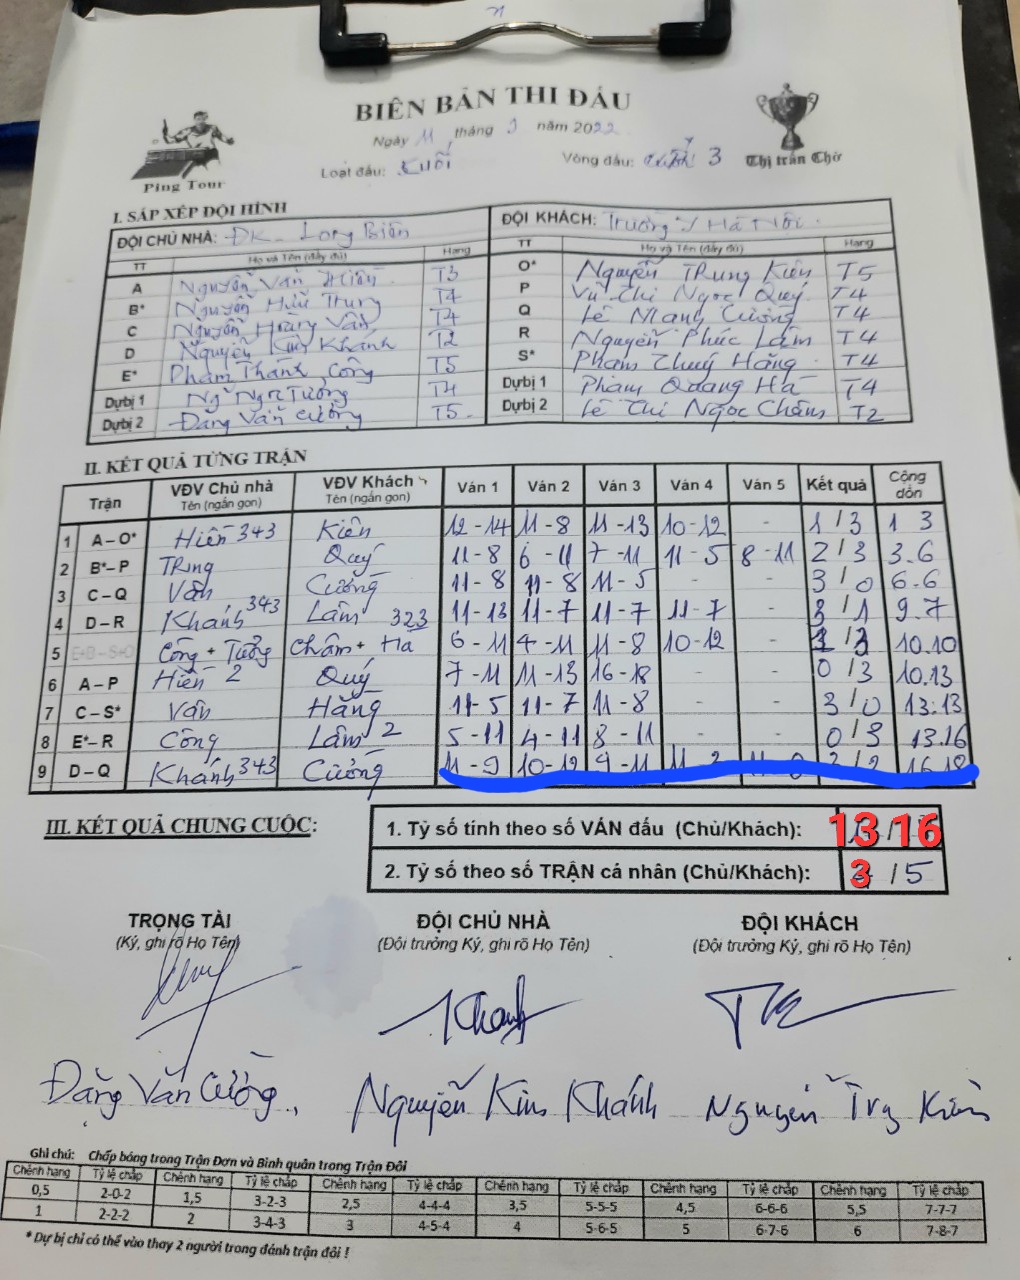 BIÊN BẢN THI ĐẤU
Ngày 11 tháng 9 năm 2022
Loạt đấu: cuối Vòng đấu: 3
Ping Tour
Thị trấn Chờ
I. SẮP XẾP ĐỘI HÌNH
ĐỘI CHỦ NHÀ: ĐK_ Long Biên ĐỘI KHÁCH: Trường Y Hà Nội.
TT Họ và Tên (đầy đủ) Hạng TT Họ và Tên (đầy đủ) Hạng
A Nguyễn Văn Hiến T3 O* Nguyễn Trung Kiên T5
B* Nguyễn Hữu Trung T4 P Vũ Thị Ngọc Quý T4
C Nguyễn Hoàng Vân T4 Q Lê Mạnh Cường T4
D Nguyễn Kim Khánh T2 R Nguyễn Phúc Lâm T4
E* Phạm Thành Công T5 S* Phạm Thuý Hằng T4
Dựbị 1 Ng Ngọc Tưởng T4 Dựbị 1 Phạm Quang Hà T4
Dựbị 2 Đặng Văn Cường T5. Dựbị 2 Lê Thị Ngọc Châm T2
II. KẾT QUẢ TỪNG TRẬN
Trận VĐV Chủ nhà Tên (ngắn gọn) VĐV Khách Tên (ngắn gọn) Ván 1 Ván 2 Ván 3 Ván 4 Ván 5 Kết quả Cộng dồn
1 A–O* Hiến 343 Kiên 12-14 11-8 11-13 10-12 - 1/3 1 3
2 B*–P Trung Quý 11-8 6-11 7-11 11-5 8-11 2/3 3.6
3 C–Q Vân Cường 11-8 11-8 11-5 - - 3/0 6.6
4 D–R Khánh 343 Lâm 323 11-13 11-7 11-7 11-7 - 3/1 9.7
5 E+B–S+O Công + Tưởng Châm + Hà 6-11 4-11 11-8 10-12 - 1/3 10.10
6 A–P Hiến 2 Quý 7-11 11-13 16-18 - - 0/3 10.13
7 C–S* Vân Hằng 11-5 11-7 11-8 - - 3/0 13.13
8 E*–R Công Lâm 2 5-11 4-11 8-11 - - 0/3 13.16
9 D–Q Khánh 343 Cường 11-9 10-12 9-11 3/2 16.18
III. KẾT QUẢ CHUNG CUỘC:
1. Tỷ số tính theo số VÁN đấu (Chủ/Khách): 13/16
2. Tỷ số theo số TRẬN cá nhân (Chủ/Khách): 3/5
TRỌNG TÀI ĐỘI CHỦ NHÀ ĐỘI KHÁCH
(Ký, ghi rõ Họ Tên) (Đội trưởng Ký, ghi rõ Họ Tên) (Đội trưởng Ký, ghi rõ Họ Tên)
Khanh
Đặng Văn Cường. Nguyễn Kim Khánh Nguyễn Trg Kiên
Ghi chú: Chấp bóng trong Trận Đơn và Bình quân trong Trận Đôi
Chênh hạng Tỷ lệ chấp Chênh hạng Tỷ lệ chấp Chênh hạng Tỷ lệ chấp Chênh hạng Tỷ lệ chấp Chênh hạng Tỷ lệ chấp Chênh hạng Tỷ lệ chấp
0,5 2-0-2 1,5 3-2-3 2,5 4-4-4 3,5 5-5-5 4,5 6-6-6 5,5 7-7-7
1 2-2-2 2 3-4-3 3 4-5-4 4 5-6-5 5 6-7-6 6 7-8-7
* Dự bị chỉ có thể vào thay 2 người trong đánh trận đôi !